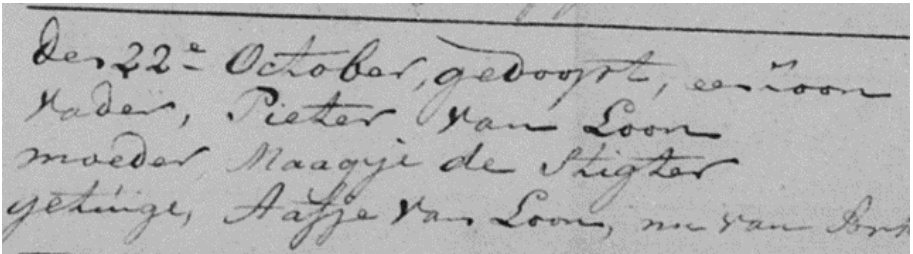 den 22e October, gedoopt, een zoon
vader, Pieter van Loon
moeder Maagje de Stigter
getuige, Aafje van Loon, nu van